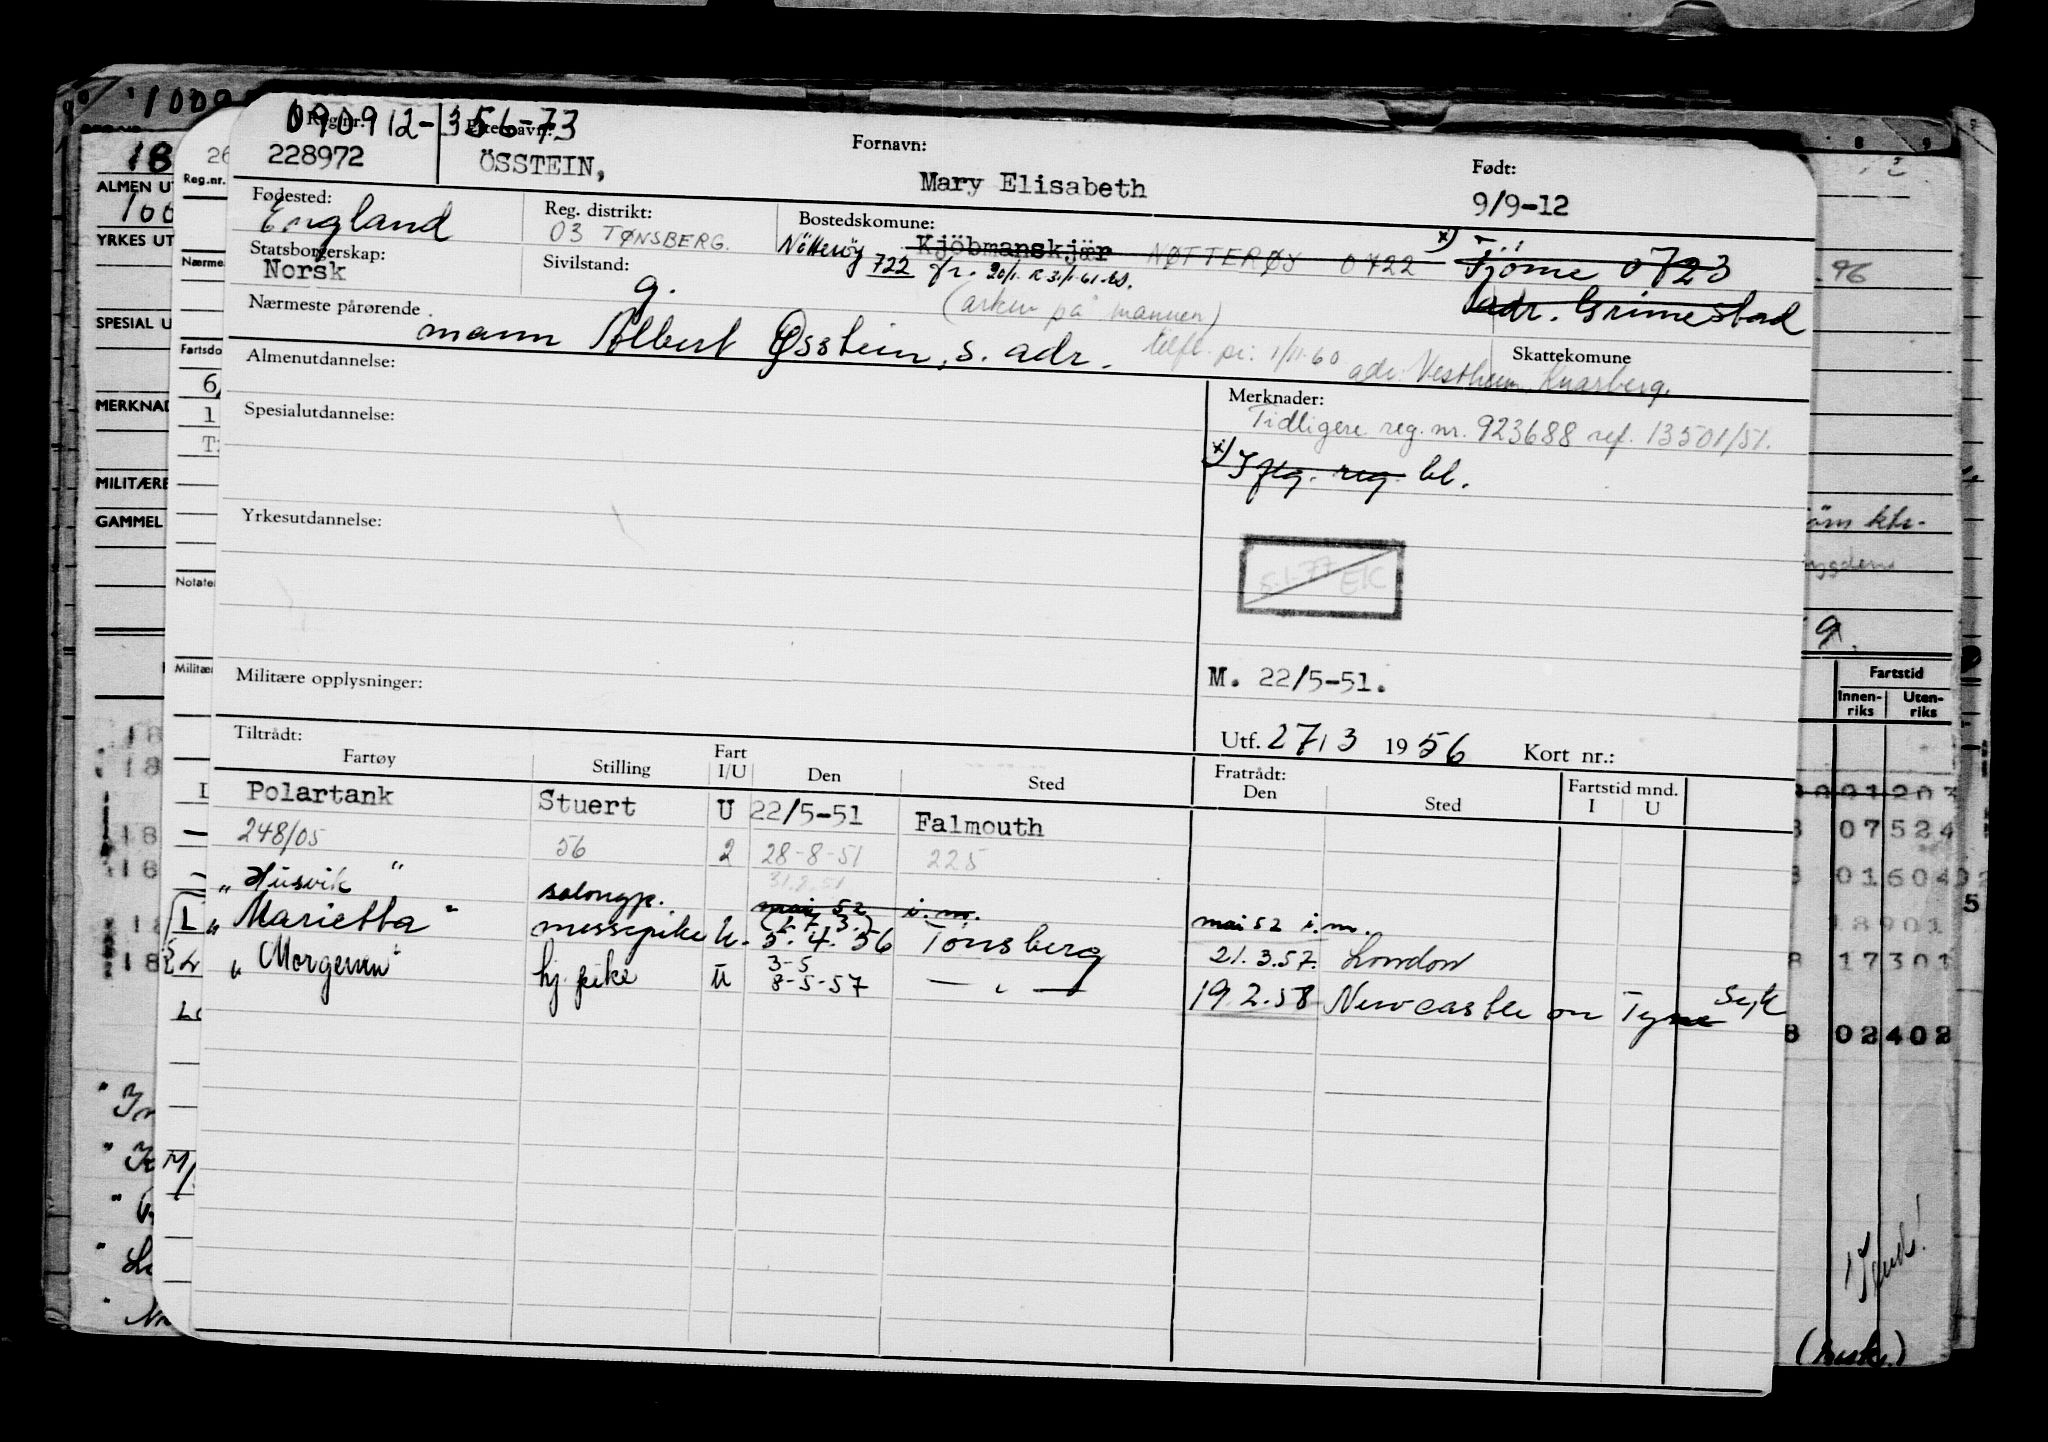 090912-356-73
Reg.nr. Etternavn: Fornavn: Født:
228972 ÖSSTEIN, Mary Elisabeth 9/9-12
Fødested: Reg. distrikt: Bostedskomune:
England 03 TØNSBERG. Nötteröy Kjöbmanskjär NØTTERØY 0722 x) Tjöme 0723
722 fr. 20/1. R 31/1-61.
Statsborgerskap: Sivilstand:
Norsk g. (arken på mannen) adr. Grimestad
Nærmeste pårørende
mann Albert Øsstein, s. adr. 1/11-60 adr. Vestheim, Knarberg.
Skattekomune
Almenutdannelse:
Merknader:
Tidligere reg. nr. 923688 ref. 13501/51.
Spesialutdannelse:
x) I flg. reg. bl.
Yrkesutdannelse:
5.1.77 EK
Militære opplysninger:
M. 22/5-51.
Utf. 27/3 1956 Kort nr.:
Tiltrådt: Fratrådt: Fartstid mnd.
Fartøy Stilling Fart I/U Den Sted Den Sted I U
Polartank Stuert U 22/5-51 Falmouth
248/05 56 2 28-8-51 225
31.8.51
"Husvik" salongp. mai 52 i.m. mai 52 i.m.
(27.3.)
"Marietta" messepike U. 5.4.56 Tönsberg 21.3.57. London
3-5
"Morgenen" hj. pike U 8-5-57 — " — 19.2.58 Newcastle on Tyne Syk
1009
18 26
ALMEN UT Reg.nr.
100
YRKES UT
Nærme
SPESIAL U
Fartsdo
6
MERKNAD 1
T
MILITÆRE
GAMMEL
Notater
Militæ
96
jöm kts.
bygdens
g.
Fartstid
Innen-riks Uten-riks
001203
07524
01604
18901
17301
02402
5